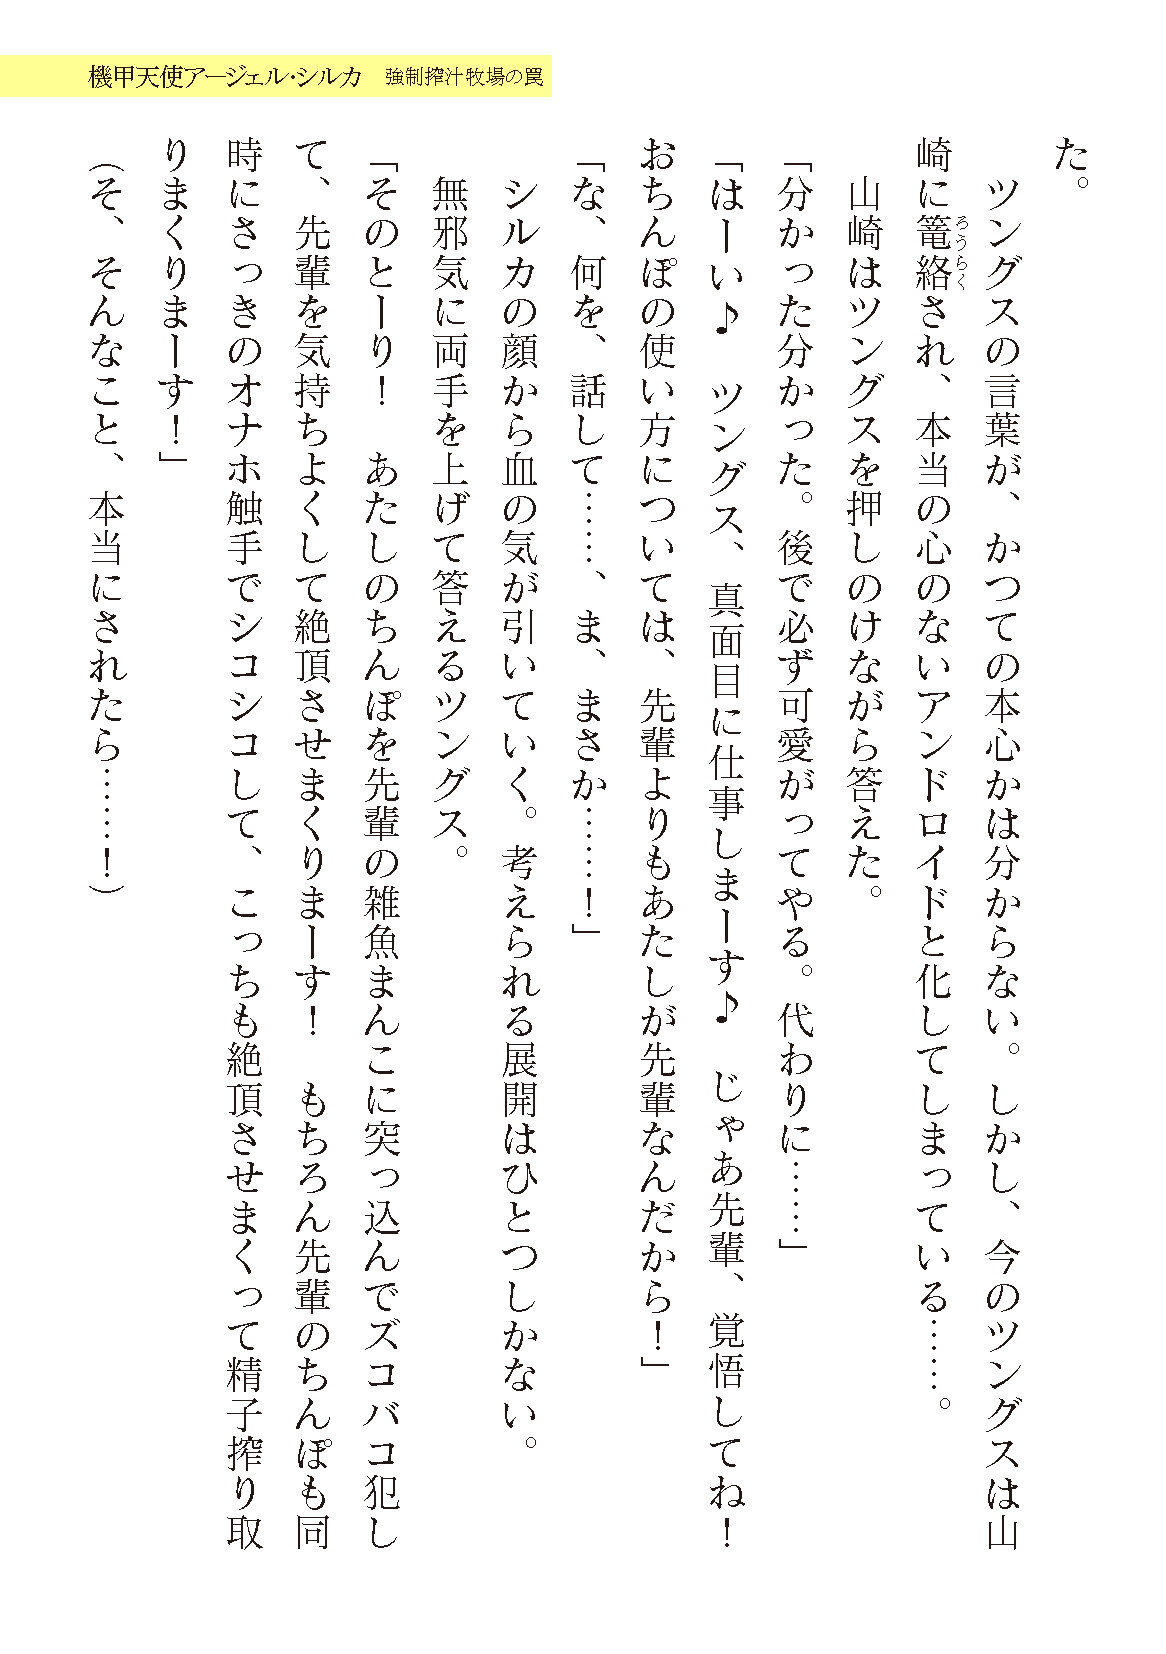 機甲天使アージェル・シルカ　強制搾汁牧場の罠
た。
　ツングスの言葉が、かつての本心かは分からない。しかし、今のツングスは山
崎に篭絡され、本当の心のないアンドロイドと化してしまっている……。
ろうらく
　山崎はツングスを押しのけながら答えた。
「分かった分かった。後で必ず可愛がってやる。代わりに……」
「はーい♪　ツングス、真面目に仕事しまーす♪　じゃあ先輩、覚悟してね！
おちんぽの使い方については、先輩よりもあたしが先輩なんだから！」
「な、何を、話して……、ま、まさか……！」
　シルカの顔から血の気が引いていく。考えられる展開はひとつしかない。
　無邪気に両手を上げて答えるツングス。
「そのとーり！　あたしのちんぽを先輩の雑魚まんこに突っ込んでズコバコ犯し
て、先輩を気持ちよくして絶頂させまくりまーす！　もちろん先輩のちんぽも同
時にさっきのオナホ触手でシコシコして、こっちも絶頂させまくって精子搾り取
りまくりまーす！」
（そ、そんなこと、本当にされたら……！）